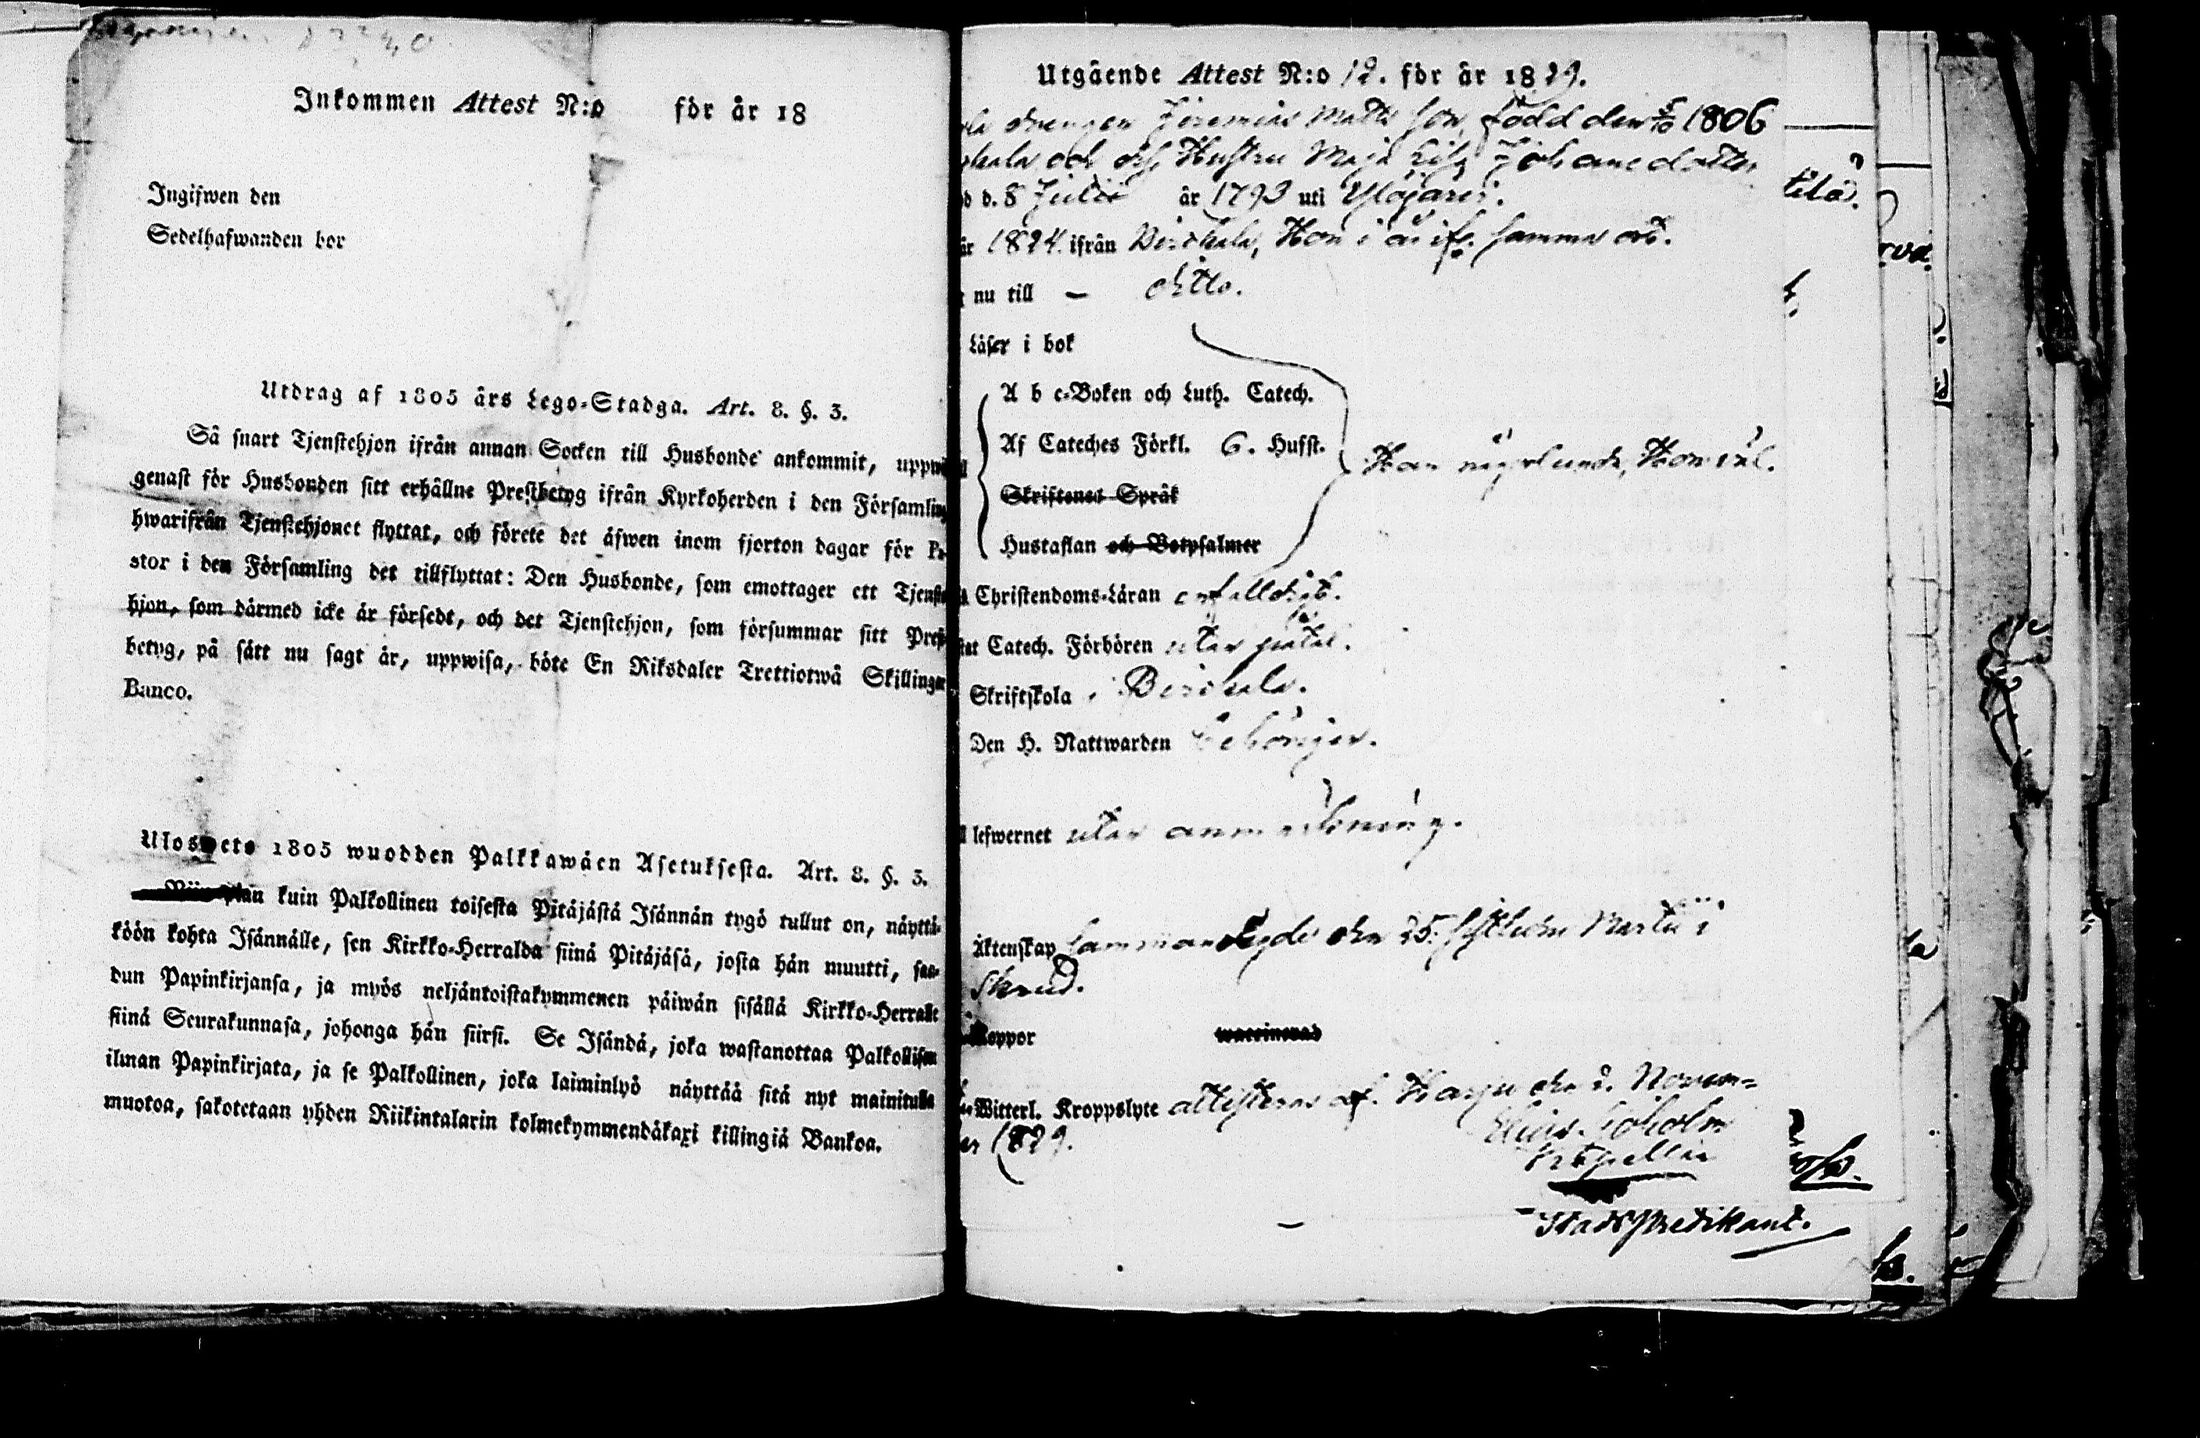 Inkommen Attest N:o för år 18
Ingifwen den
Sedelhafwanden bor
Utdrag af 1805 års Lego-Stadga. Art. 8. §. 3.
Så snart Tjenstehjon ifrån annan Socken till Husbonde ankommit, uppwi
genast för Husbonden sitt erhållne Prestbetyg ifrån Kyrkoherden i den Församling
hwarifrån Tjenstehjonet flyttat, och förete det äfwen inom fjorton dagar för Pa-
stor i den Församling det tillflyttat: Den Husbonde, som emottager ett Tjenste
hjon, som därmed icke är försedt, och det Tjenstehjon, som försummar sitt Prest
betyg, på sätt nu sagt är, uppwisa, böte En Riksdaler Trettiotwå Skillingar
Banco.
Ulosweto 1805 wuodden Palkkawäen Asetuksesta. Art. 8. §. 3.
kuin Palkollinen toisesta Pitäjästä Isännän tygö tullut on, näyttä-
köön kohta Isännälle, sen Kirkko-Herralda siinä Pitäjäsä, josta hän muutti, saa-
dun Papinkirjansa, ja myös neljäntoistakymmenen päiwän sisällä Kirkko-Herralle
siinä Seurakunnasa, johonga hän siirsi. Se Isändä, joka wastanottaa Palkollisen
ilman Papinkirjata, ja se Palkollinen, joka laiminlyö näyttää sitä nyt mainitulla
muotoa, sakotetaan yhden Riikintalarin kolmekymmendäkaxi killingiä Bankoa.
Utgående Attest N:o 12. för år 1829.
drengen Jeremias Matts son, född den 5/10 1806
och dess Hustru Maja Lisa Johansdotter
d. 8 Julii år 1793 uti Ylöjärvi.
år 1824. ifrån Birkala, Hon i år ifr. samma ort.
nu till – ditto.
Läser i bok
A b c-Boken och Luth. Catech.
Af Cateches Förkl. 6. Hufst.
Han någorlunda, Hon väl.
Skriftenes Språk
Hustaflan och Botpsalmer
Christendoms-Läran enfalldigt.
Catech. Förhören utan påtal.
Skriftskola i Birkala.
Den H. Nattwarden behörigen.
lefwernet utan anmärkning.
Äktenskap sammanlyste den 25. Martii i
Skrud.
Koppor waccinerad
Witterl. Kroppslyte attesteras af. Harju den 2. Novem-
ber 1829.
Stadspredikant.